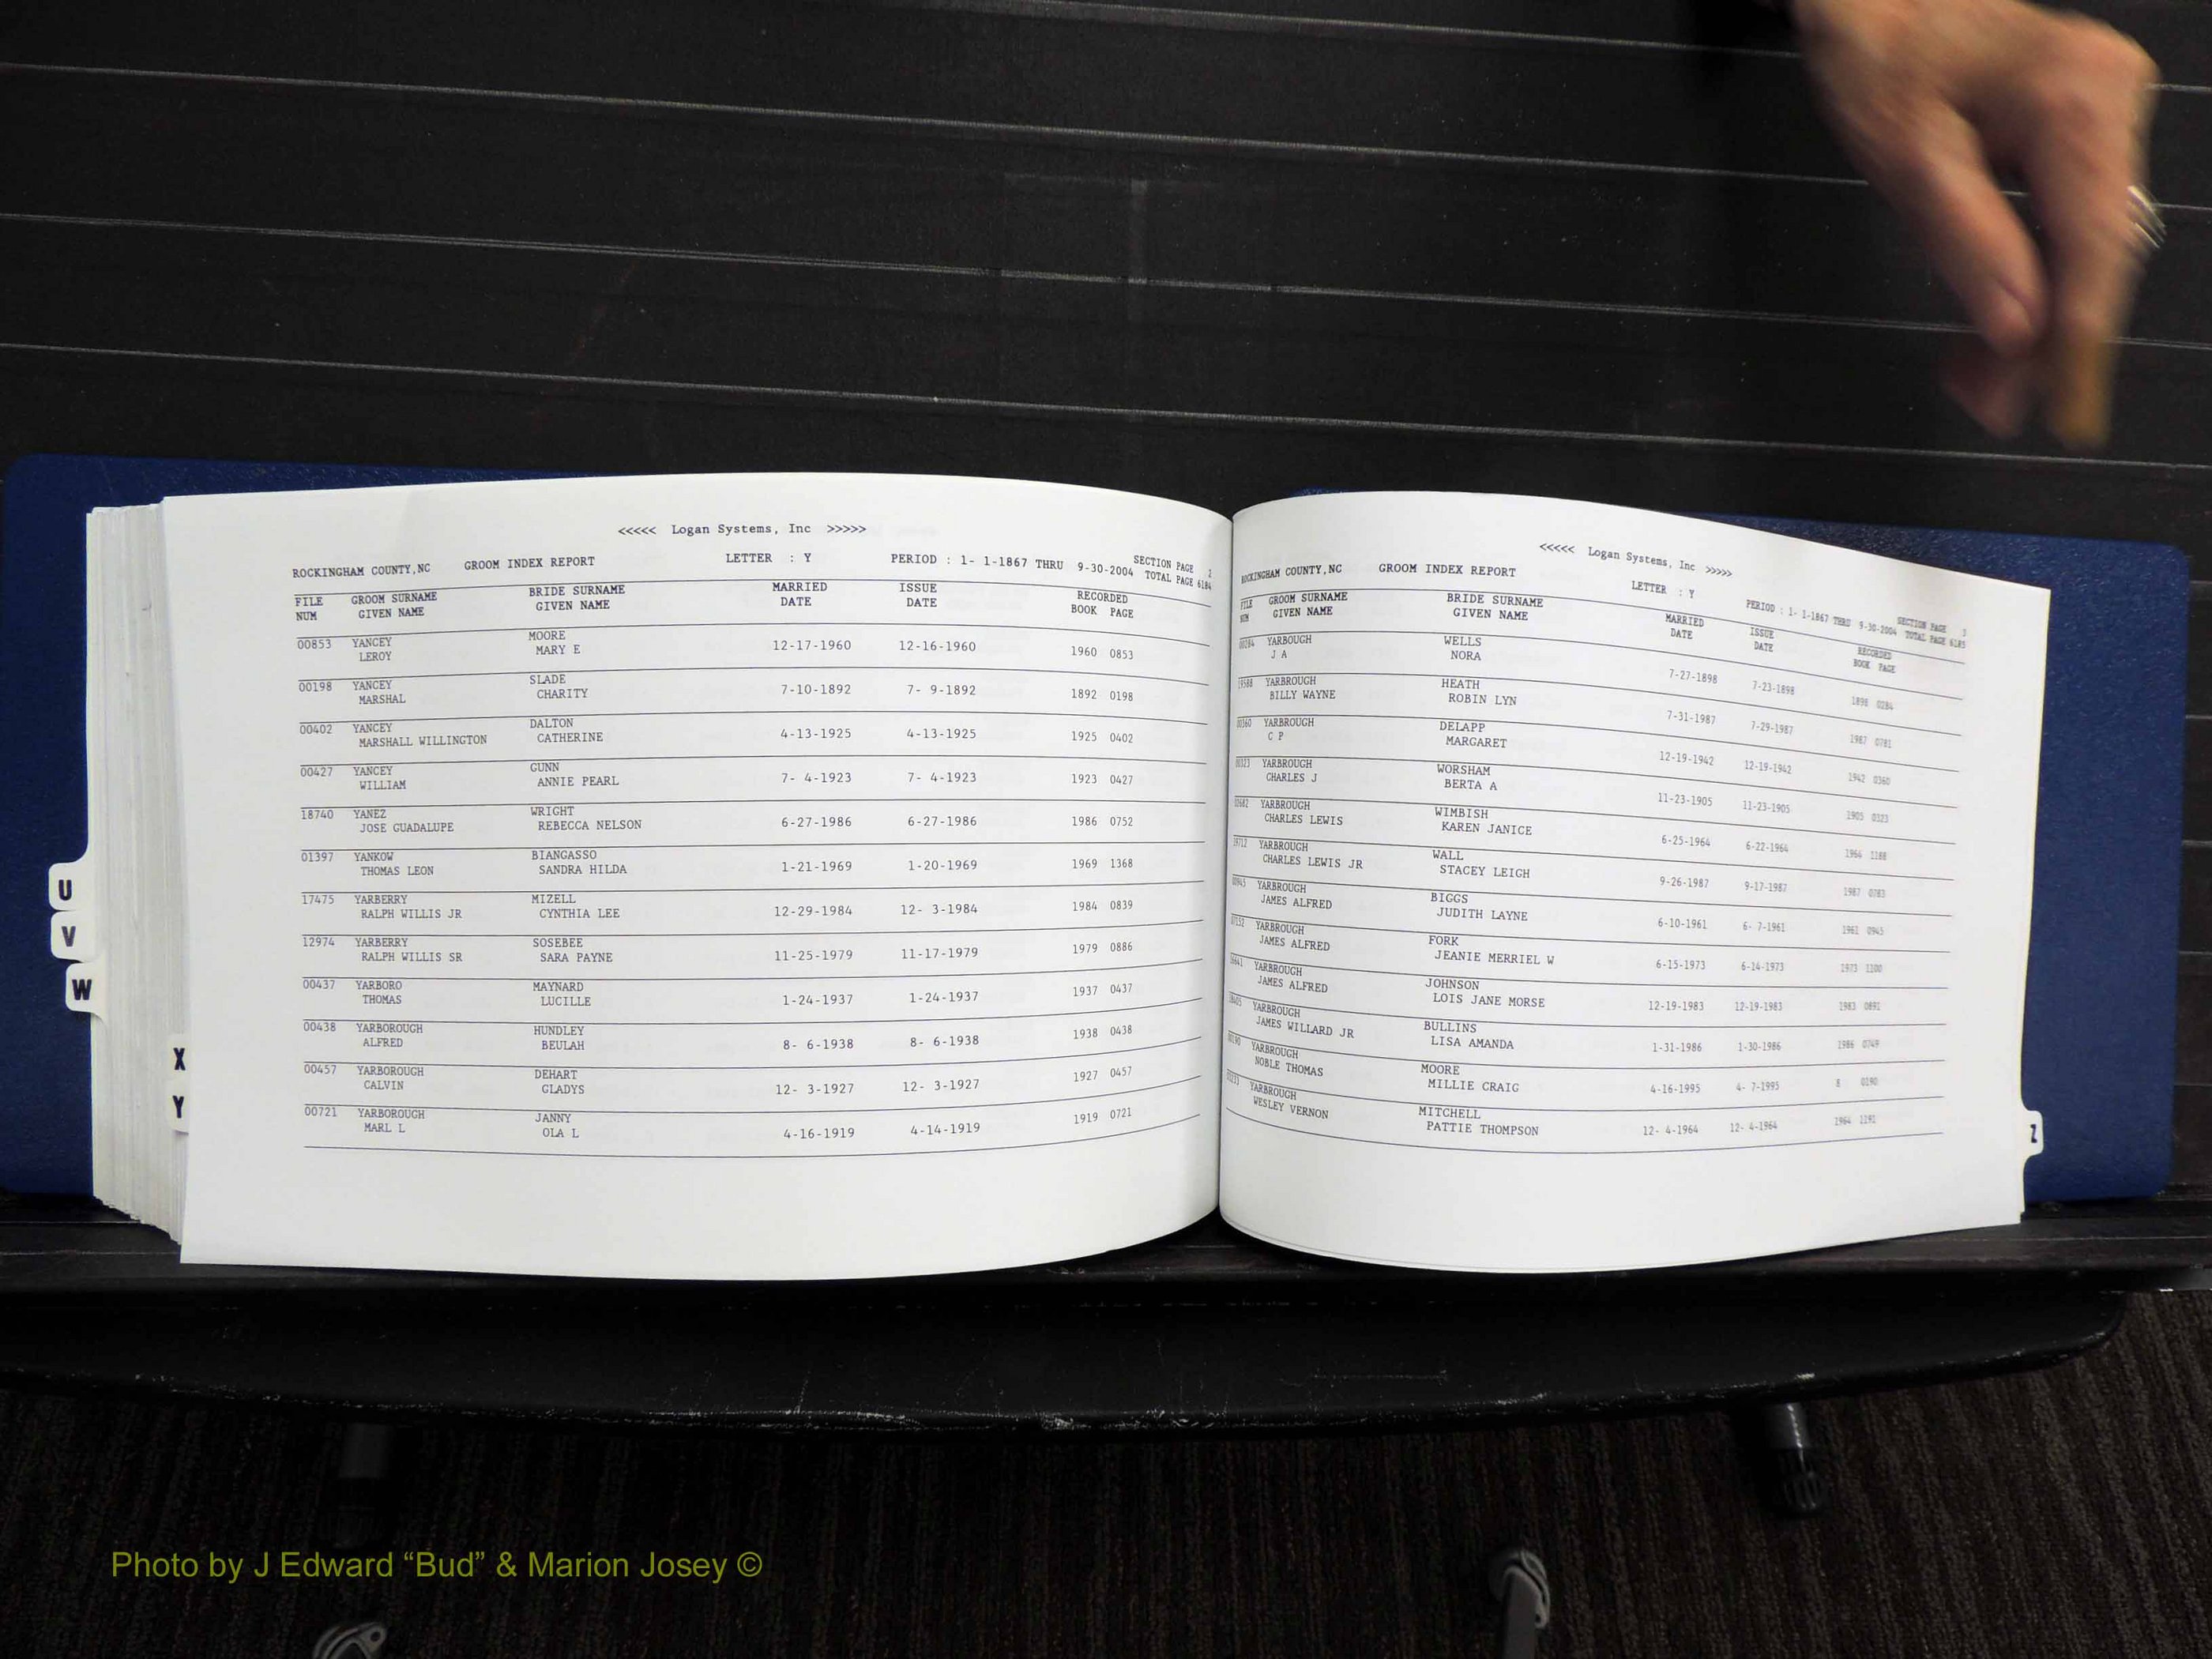 <<<<< Logan Systems, Inc >>>>>
ROCKINGHAM COUNTY,NC GROOM INDEX REPORT LETTER : Y PERIOD : 1- 1-1867 THRU 9-30-2004 SECTION PAGE 2
TOTAL PAGE 6184
FILE GROOM SURNAME BRIDE SURNAME MARRIED ISSUE RECORDED
NUM GIVEN NAME GIVEN NAME DATE DATE BOOK PAGE
00853 YANCEY MOORE 12-17-1960 12-16-1960 1960 0853
LEROY MARY E
00198 YANCEY SLADE 7-10-1892 7- 9-1892 1892 0198
MARSHAL CHARITY
00402 YANCEY DALTON 4-13-1925 4-13-1925 1925 0402
MARSHALL WILLINGTON CATHERINE
00427 YANCEY GUNN 7- 4-1923 7- 4-1923 1923 0427
WILLIAM ANNIE PEARL
18740 YANEZ WRIGHT 6-27-1986 6-27-1986 1986 0752
JOSE GUADALUPE REBECCA NELSON
01397 YANKOW BIANGASSO 1-21-1969 1-20-1969 1969 1368
THOMAS LEON SANDRA HILDA
17475 YARBERRY MIZELL 12-29-1984 12- 3-1984 1984 0839
RALPH WILLIS JR CYNTHIA LEE
12974 YARBERRY SOSEBEE 11-25-1979 11-17-1979 1979 0886
RALPH WILLIS SR SARA PAYNE
00437 YARBORO MAYNARD 1-24-1937 1-24-1937 1937 0437
THOMAS LUCILLE
00438 YARBOROUGH HUNDLEY 8- 6-1938 8- 6-1938 1938 0438
ALFRED BEULAH
00457 YARBOROUGH DEHART 12- 3-1927 12- 3-1927 1927 0457
CALVIN GLADYS
00721 YARBOROUGH JANNY 4-16-1919 4-14-1919 1919 0721
MARL L OLA L
U
V
W
X
Y
<<<<< Logan Systems, Inc >>>>>
ROCKINGHAM COUNTY,NC GROOM INDEX REPORT LETTER : Y PERIOD : 1- 1-1867 THRU 9-30-2004 SECTION PAGE 3
TOTAL PAGE 6185
FILE GROOM SURNAME BRIDE SURNAME MARRIED ISSUE RECORDED
NUM GIVEN NAME GIVEN NAME DATE DATE BOOK PAGE
00284 YARBOUGH WELLS 7-27-1898 7-23-1898 1898 0284
J A NORA
YARBROUGH HEATH 7-31-1987 7-29-1987 1987 0781
BILLY WAYNE ROBIN LYN
00360 YARBROUGH DELAPP 12-19-1942 12-19-1942 1942 0360
C P MARGARET
00323 YARBROUGH WORSHAM 11-23-1905 11-23-1905 1905 0323
CHARLES J BERTA A
YARBROUGH WIMBISH 6-25-1964 6-22-1964 1964 1188
CHARLES LEWIS KAREN JANICE
YARBROUGH WALL 9-26-1987 9-17-1987 1987 0783
CHARLES LEWIS JR STACEY LEIGH
00945 YARBROUGH BIGGS 6-10-1961 6- 7-1961 1961 0945
JAMES ALFRED JUDITH LAYNE
YARBROUGH FORK 6-15-1973 6-14-1973 1973 1100
JAMES ALFRED JEANIE MERRIEL W
YARBROUGH JOHNSON 12-19-1983 12-19-1983 1983 0891
JAMES ALFRED LOIS JANE MORSE
YARBROUGH BULLINS 1-31-1986 1-30-1986 1986 0749
JAMES WILLARD JR LISA AMANDA
00190 YARBROUGH MOORE 4-16-1995 4- 7-1995 8 0190
NOBLE THOMAS MILLIE CRAIG
YARBROUGH MITCHELL 12- 4-1964 12- 4-1964 1964 1191
WESLEY VERNON PATTIE THOMPSON
Z
Photo by J Edward “Bud” & Marion Josey ©